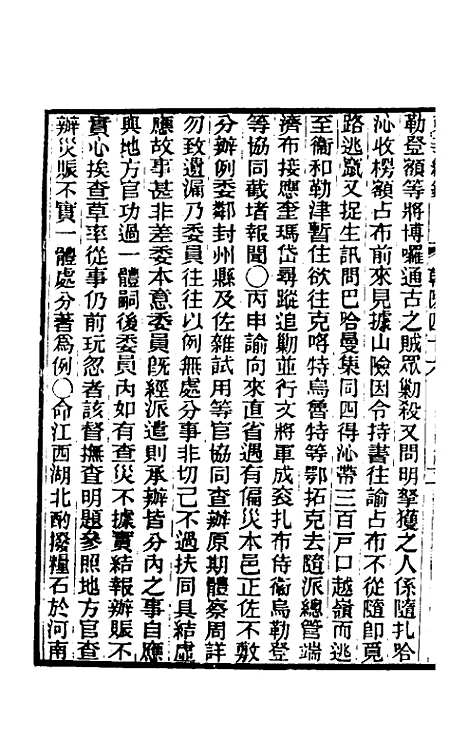 勒登額等將博囉通古之賊眾勦殺又問明拏獲之人係隨扎哈
沁收楞額占布前來見據山險因令持書往諭占布不從隨即覓
路逃竄又捉生訊問巴哈曼集同四得沁帶三百戶口越嶺而逃
至衛和勒津暫住欲往克喀特烏魯特等鄂拓克去隨派總管端
濟布接應奎瑪岱尋蹤追勦並行文將軍成袞扎布侍衛烏勒登
等協同截堵報聞〇丙申諭向來直省遇有偏災本邑正佐不敷
分辦例委鄰封州縣及佐雜試用等官協同查辦原期體察周詳
勿致遺漏乃委員往往以例無處分事非切己不過扶同具結虛
應故事甚非差委本意委員既經派遣則承辦皆分內之事自應
與地方官功過一體嗣後委員內如有查災不據實結報辦賑不
實心挨查草率從事仍前玩忽者該督撫查明題參照地方官查
辦災賑不實一體處分著為例〇命江西湖北酌撥糧石於河南